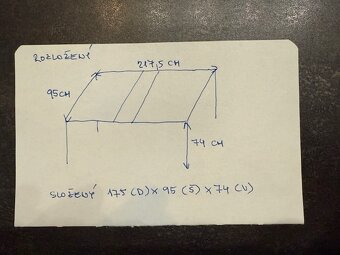 ROZLOŽENÝ
217,5 CM
95CM
74 CM
SLOŽENÝ 175 (D) X 95 (Š) X 74 (V)